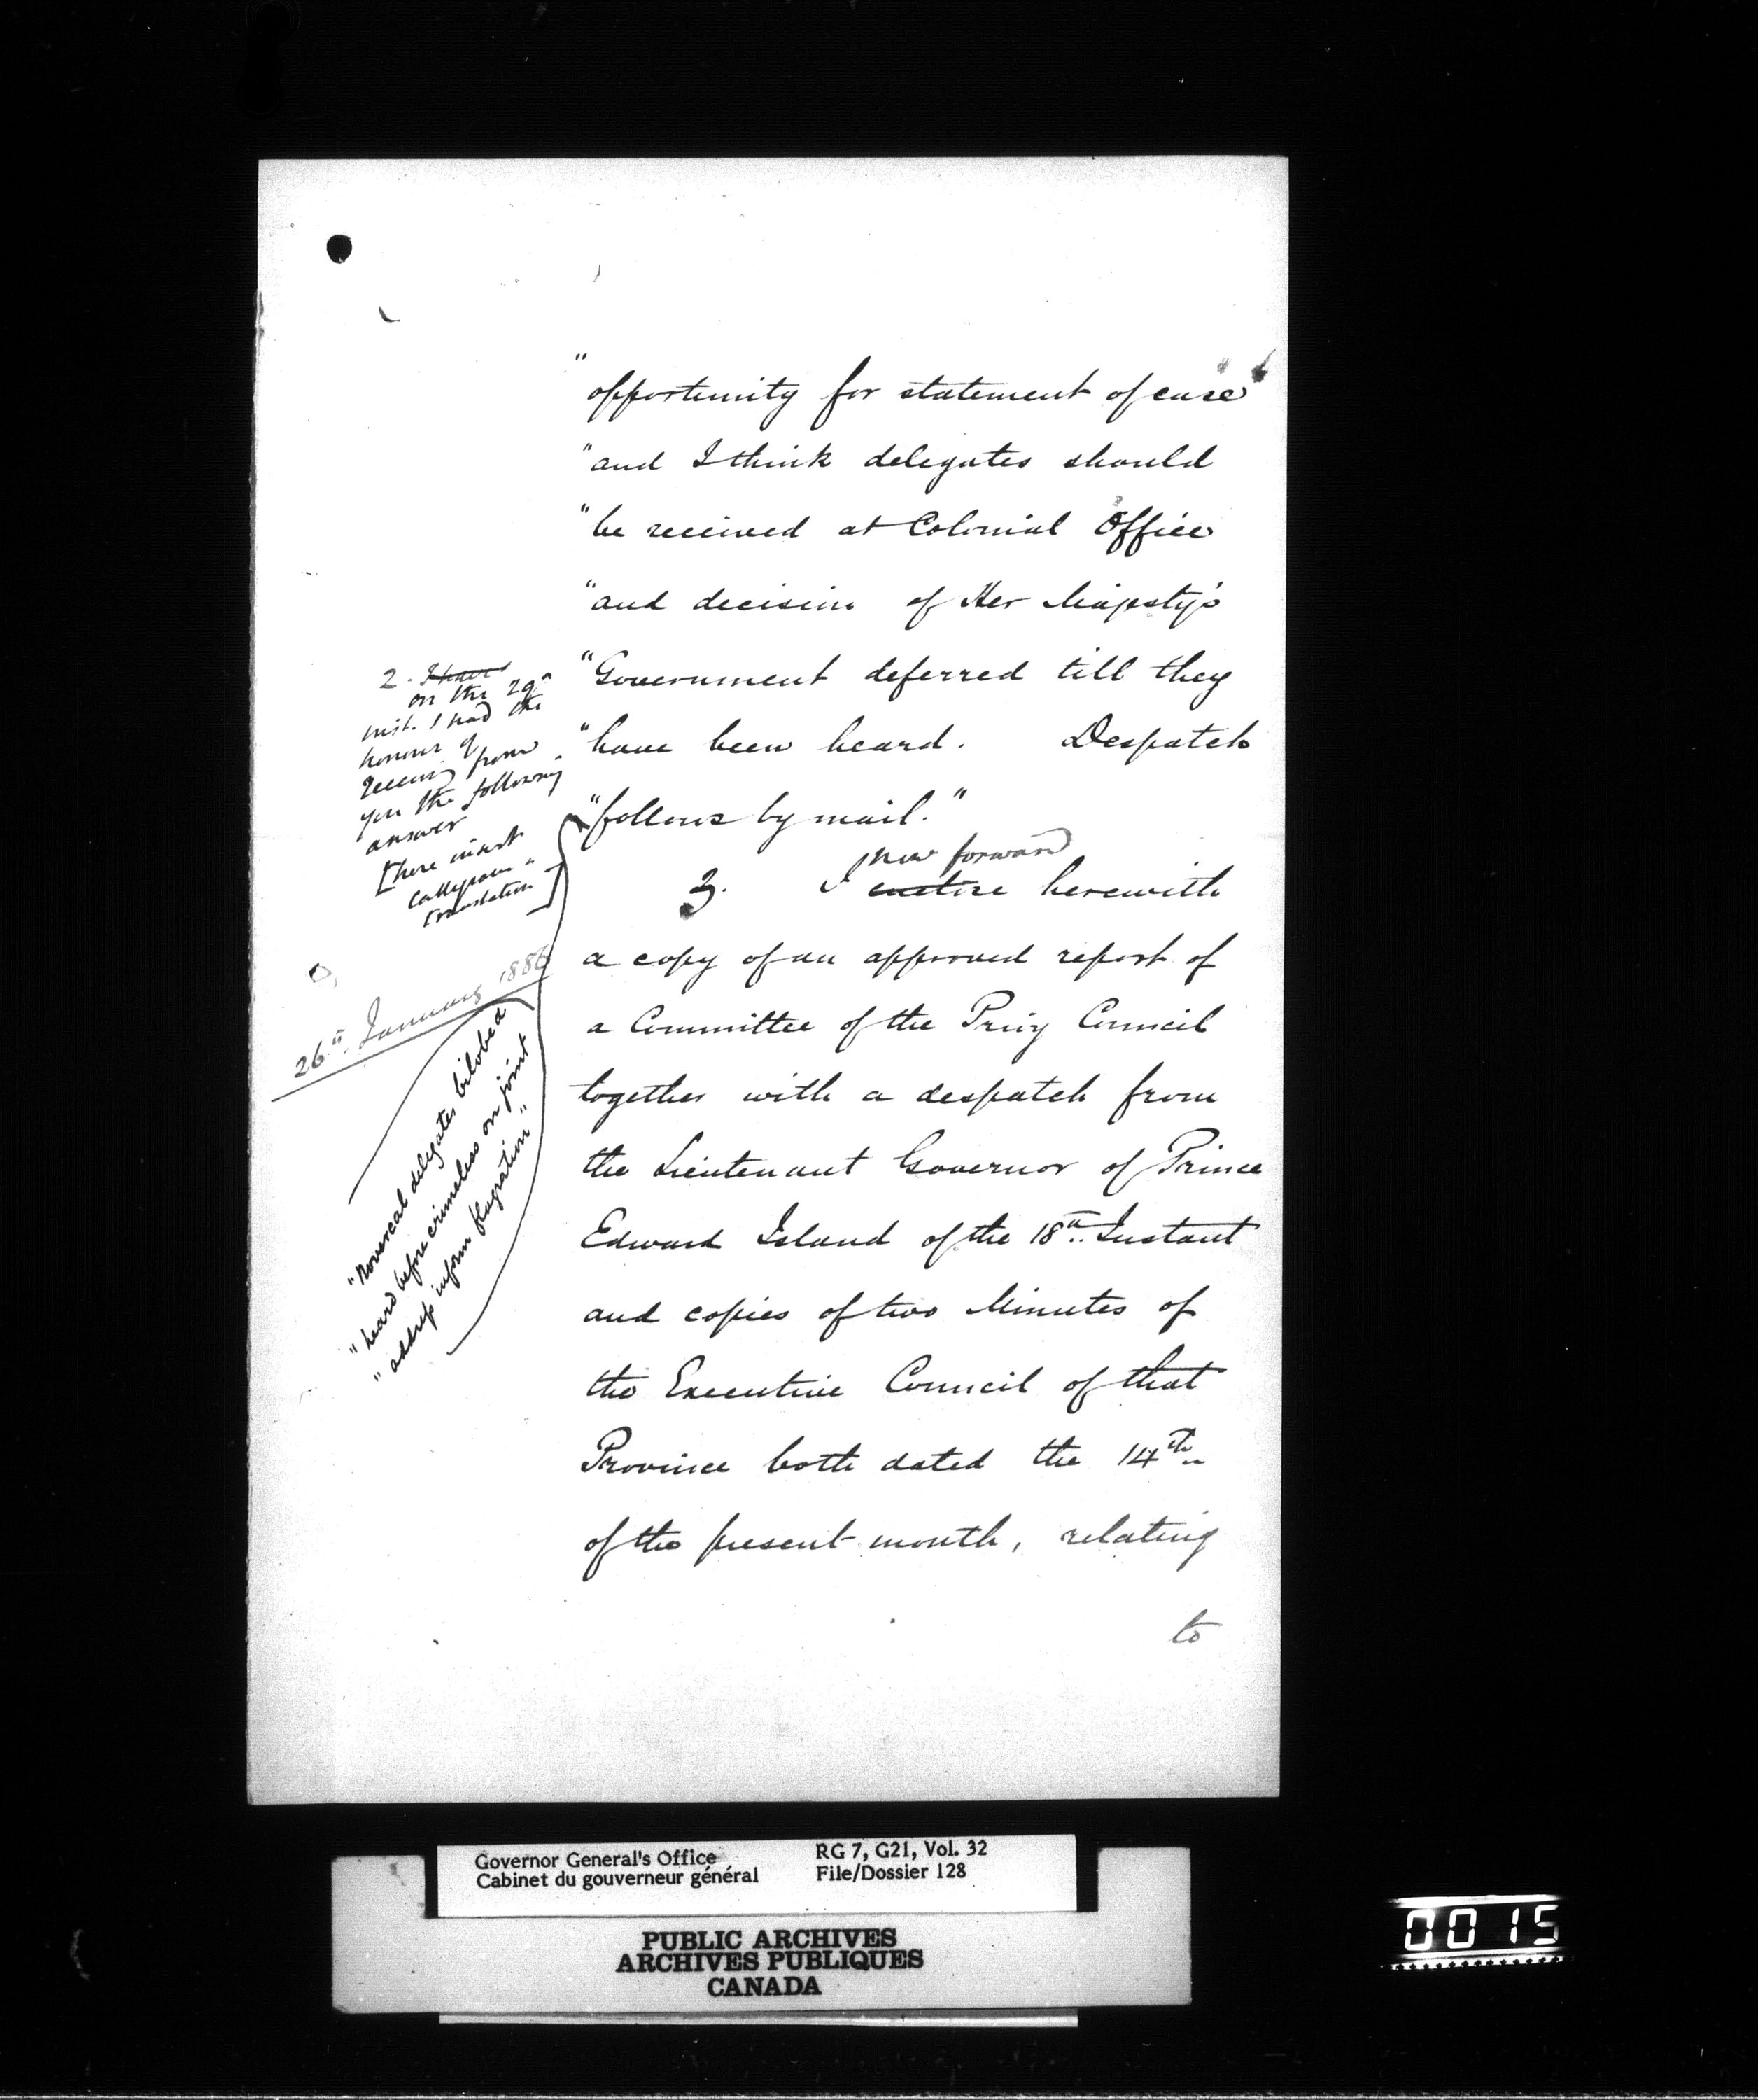 "opportunity for statement of case
"and I think delegates should
"be received at Colonial Office
"and decision of Her Majesty's
"Government deferred till they
"have been heard. Despatch
"follows by mail."
now forward
3. I enclose herewith
a copy of an approved report of
a Committee of the Privy Council
together with a despatch from
the Lieutenant Governor of Prince
Edward Island of the 18th Instant
and copies of two Minutes of
the Executive Council of that
Province both dated the 14th
of the present month, relating
to
2. I have
on the 29th
inst. I had the
honour of
receiving from
you the following
answer
[here insert
translation]
26th January 1886
delegates bilobed
"heard before crimeless on joint
"address inform flugration"
Governor General's Office
Cabinet du gouverneur général
RG 7, G21, Vol. 32
File/Dossier 128
PUBLIC ARCHIVES
ARCHIVES PUBLIQUES
CANADA
0015